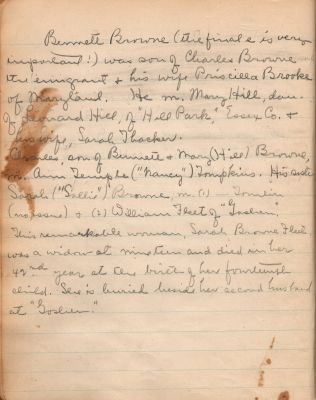 Bennett Browne (the final e is very
important!) was son of Charles Browne
the emigrant & his wife Priscilla Brooke
of Maryland. He m. Mary Hill, dau.
of Leonard Hill, of "Hill Park," Essex Co. &
his wife, Sarah Thacker.
Charles, son of Bennett & Mary (Hill) Browne,
m. Ann Temple ("Nancy") Tompkins. His sister
Sarah ("Sallie") Browne m. (1) Tomlin
& (2) William Fleet of "Goshen."
This remarkable woman, Sarah Browne Fleet,
was a widow at nineteen and died in her
42nd year at the birth of her fourteenth
child. She is buried beside her second husband
at "Goshen."